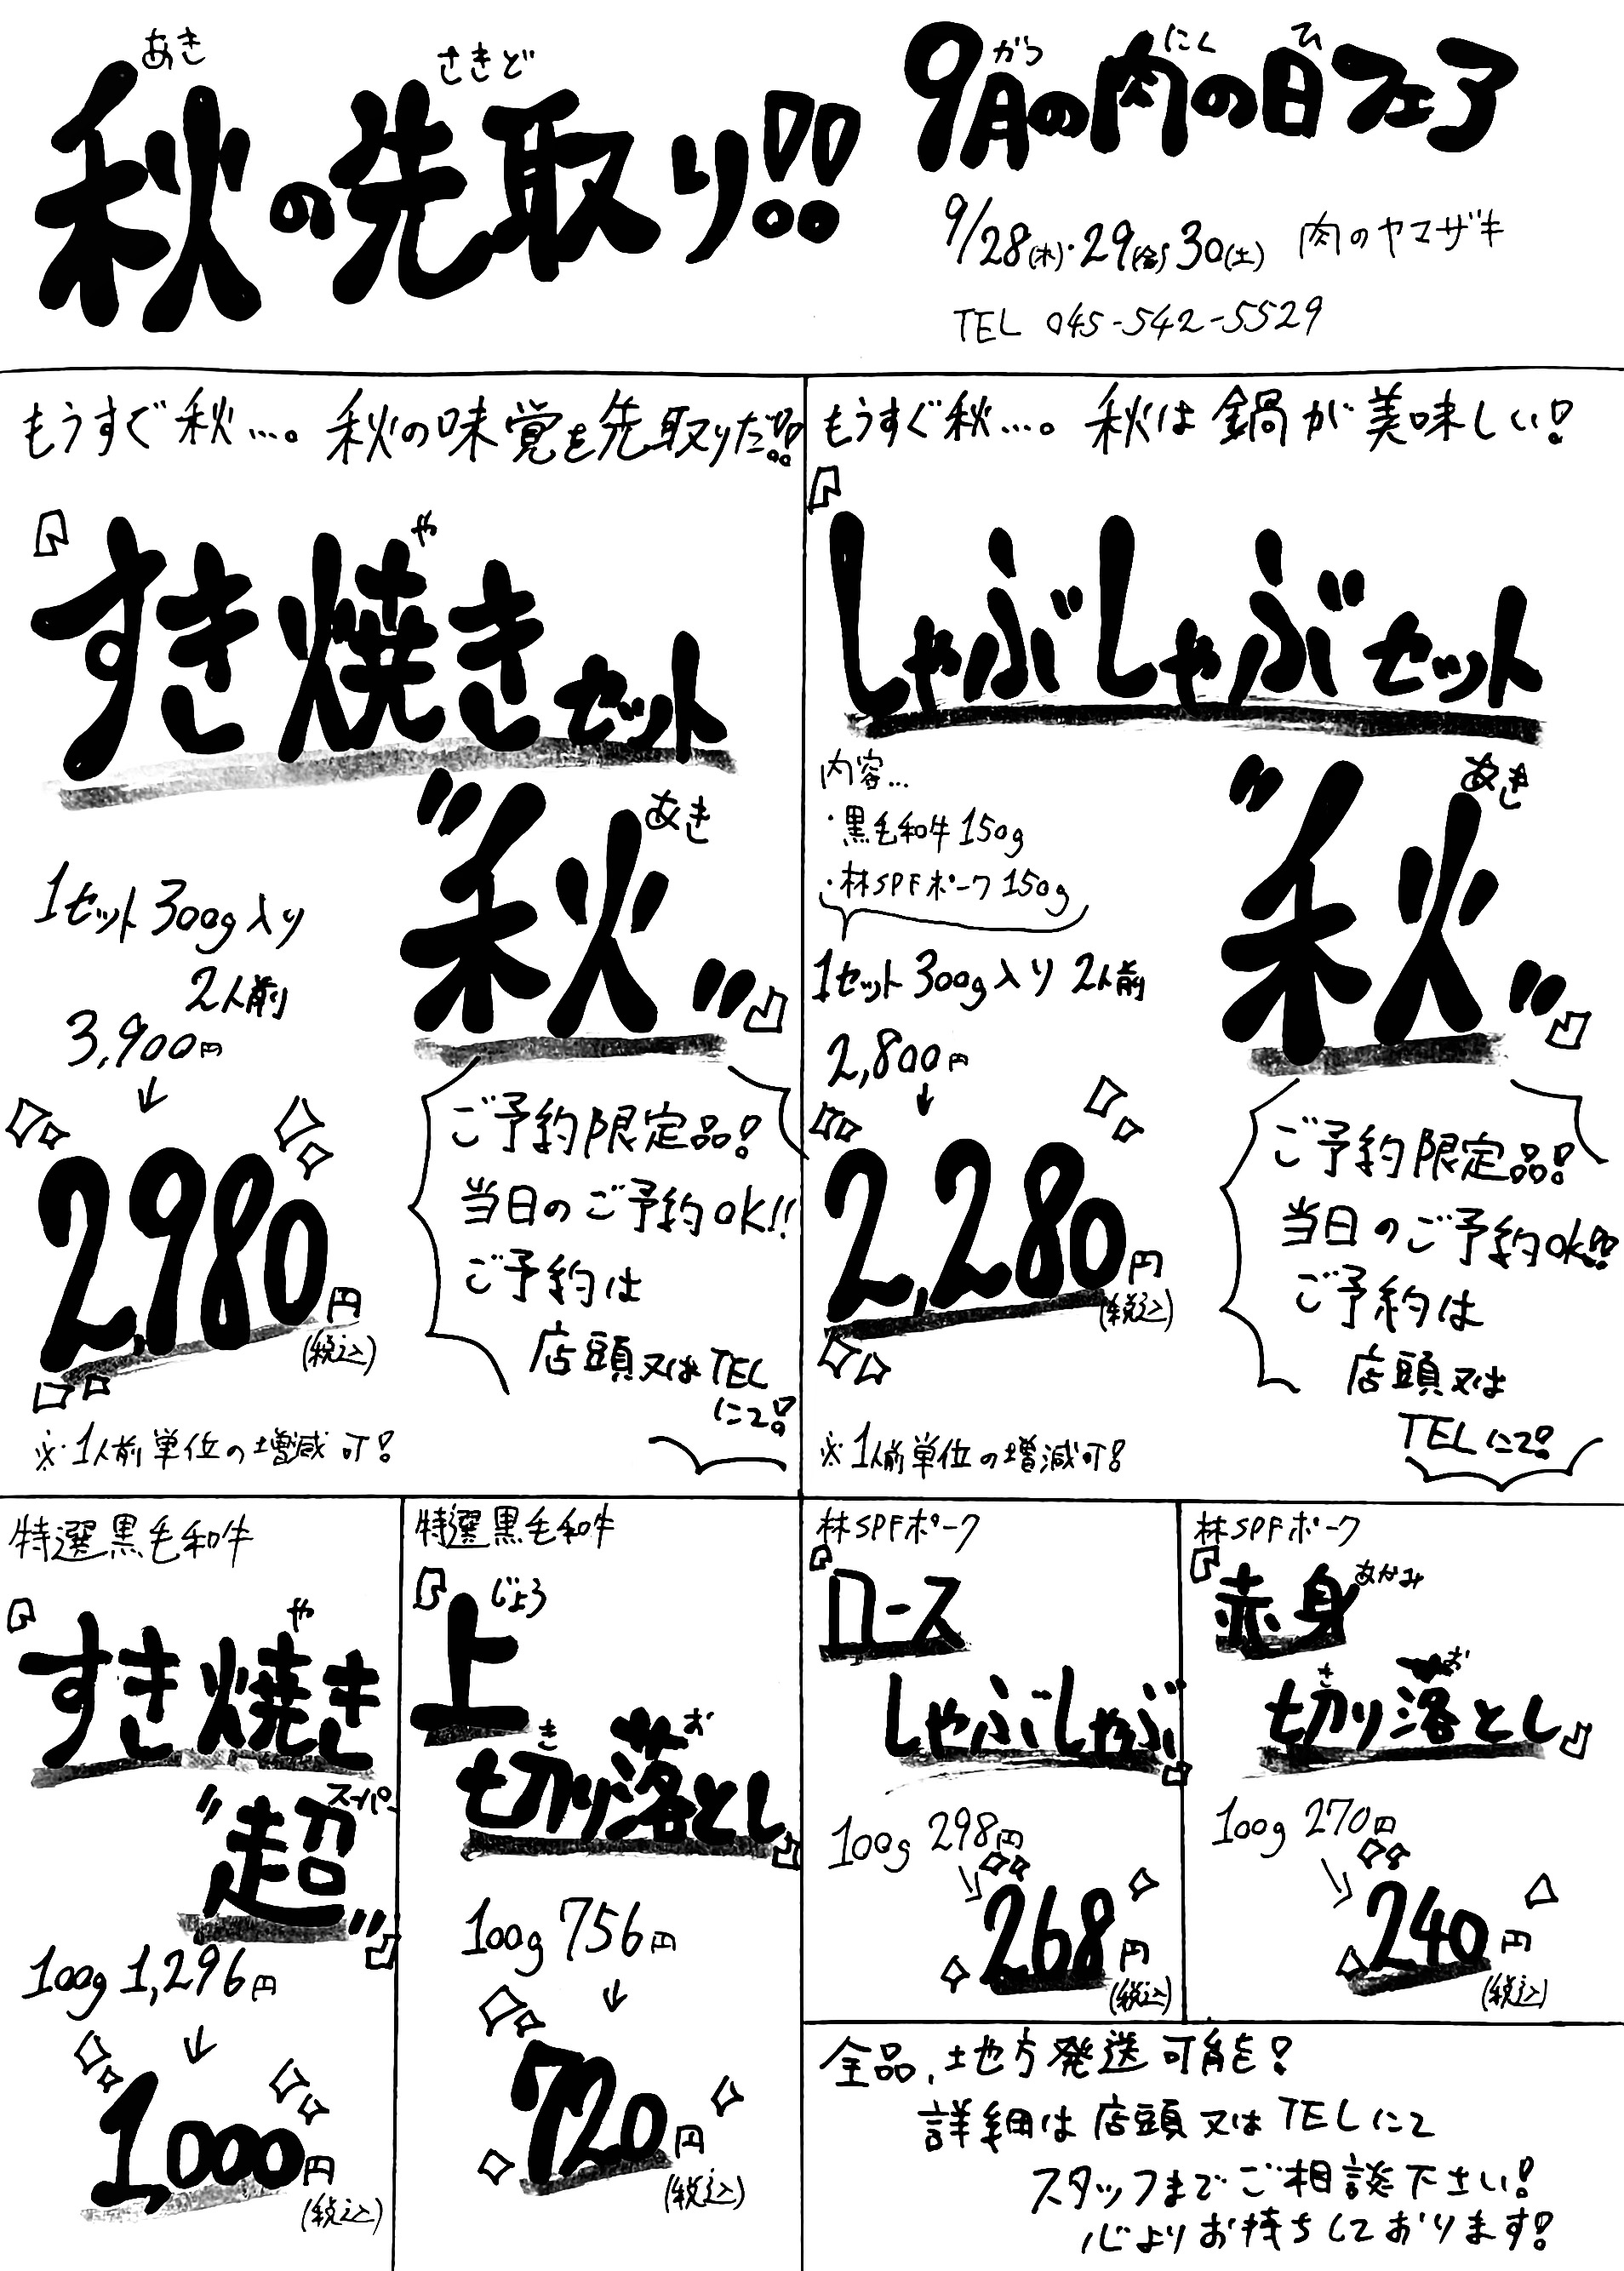 秋の先取り!!
あき
さきど
9月の肉の日フェア
がつ
にく
ひ
9/28(木)・29(金)・30(土) 肉のヤマザキ
TEL 045-542-5529
もうすぐ秋…。秋の味覚を先取りだ!!
『すき焼きセット
や
"秋"』
あき
1セット300g入り
2人前
3,900円
↓
2,980円
(税込)
ご予約限定品!
当日のご予約OK!!
ご予約は
店頭又はTEL
にて!
※1人前単位の増減可!
もうすぐ秋…。秋は鍋が美味しい!
『しゃぶしゃぶセット
"秋"』
あき
内容…
・黒毛和牛150g
・林SPFポーク150g
1セット300g入り 2人前
2,800円
↓
2,280円
(税込)
ご予約限定品!
当日のご予約OK!!
ご予約は
店頭又は
TELにて!
※1人前単位の増減可!
特選黒毛和牛
『すき焼き
や
"超"』
スーパー
100g 1,296円
↓
1,000円
(税込)
特選黒毛和牛
『上
じょう
切り落とし』
き
お
100g 756円
↓
720円
(税込)
林SPFポーク
『ロース
しゃぶしゃぶ』
100g 298円
↓
268円
(税込)
林SPFポーク
『赤身
あかみ
切り落とし』
き
お
100g 270円
↓
240円
(税込)
全品、地方発送可能!
詳細は店頭又はTELにて
スタッフまでご相談下さい!
心よりお待ちしております!